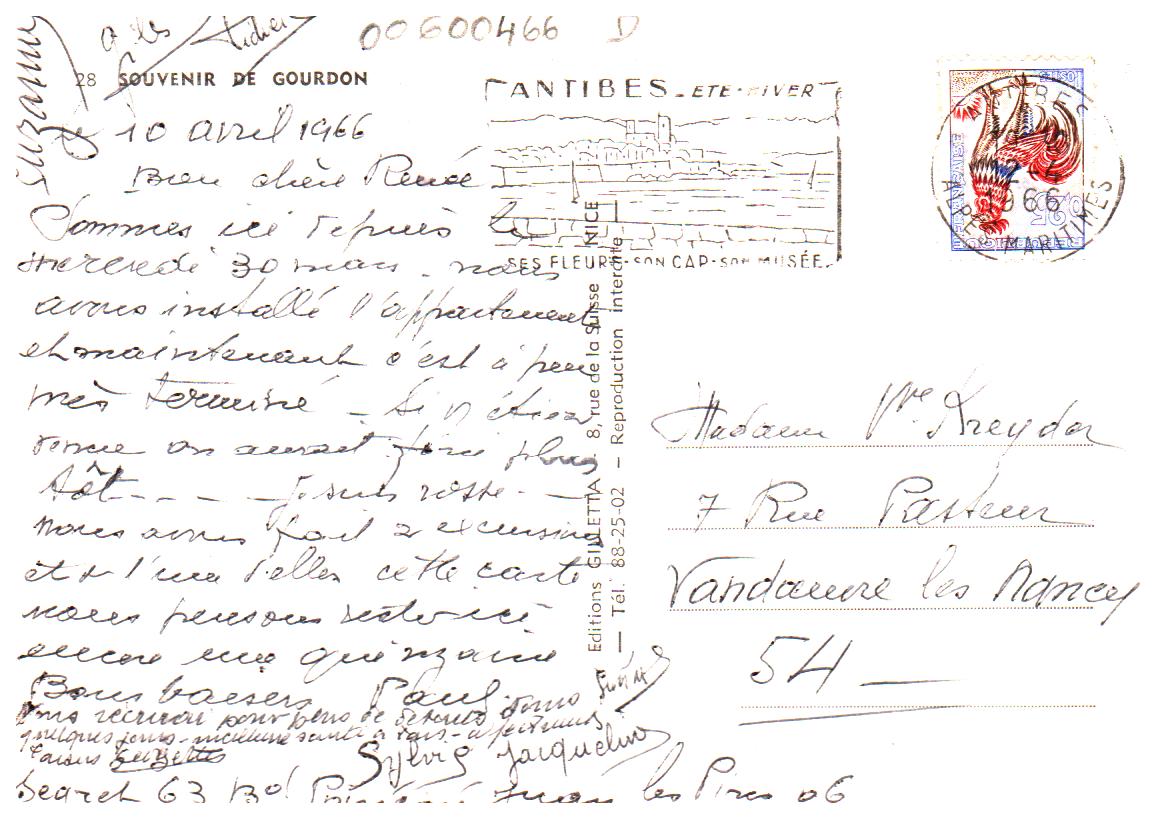 00600466 D
Suzanne
à les
28 SOUVENIR DE GOURDON
ANTIBES - ETE - HIVER
SES FLEURS - SON CAP - SON MUSÉE
ANTIBES
1966
ALPES MARITIMES
0,25
le 10 avril 1966
Bien chère Renée
Sommes ici depuis le
mercredi 30 mars - nous
avons installé l'appartement
et maintenant c'est à peu
près terminé - Si
on aurait fini plus
tôt - - - - je suis rosse - -
nous avons fait 2 excursions
et l'une d'elles cette carte
nous pensons rester ici
encore une quinzaine
Bons baisers Paul
vous pour plus de détails dans
quelques jours - meilleure santé à tous - affectueux
baisers Georgette
Sylvie Jacqueline
63 Bd Juan les Pins 06
Editions GILLETTA - 8, rue de la Suisse NICE
— Tél. 88-25-02 — Reproduction interdite
Madame Vve Kreyder
7 Rue Pasteur
Vandoeuvre les Nancy
54